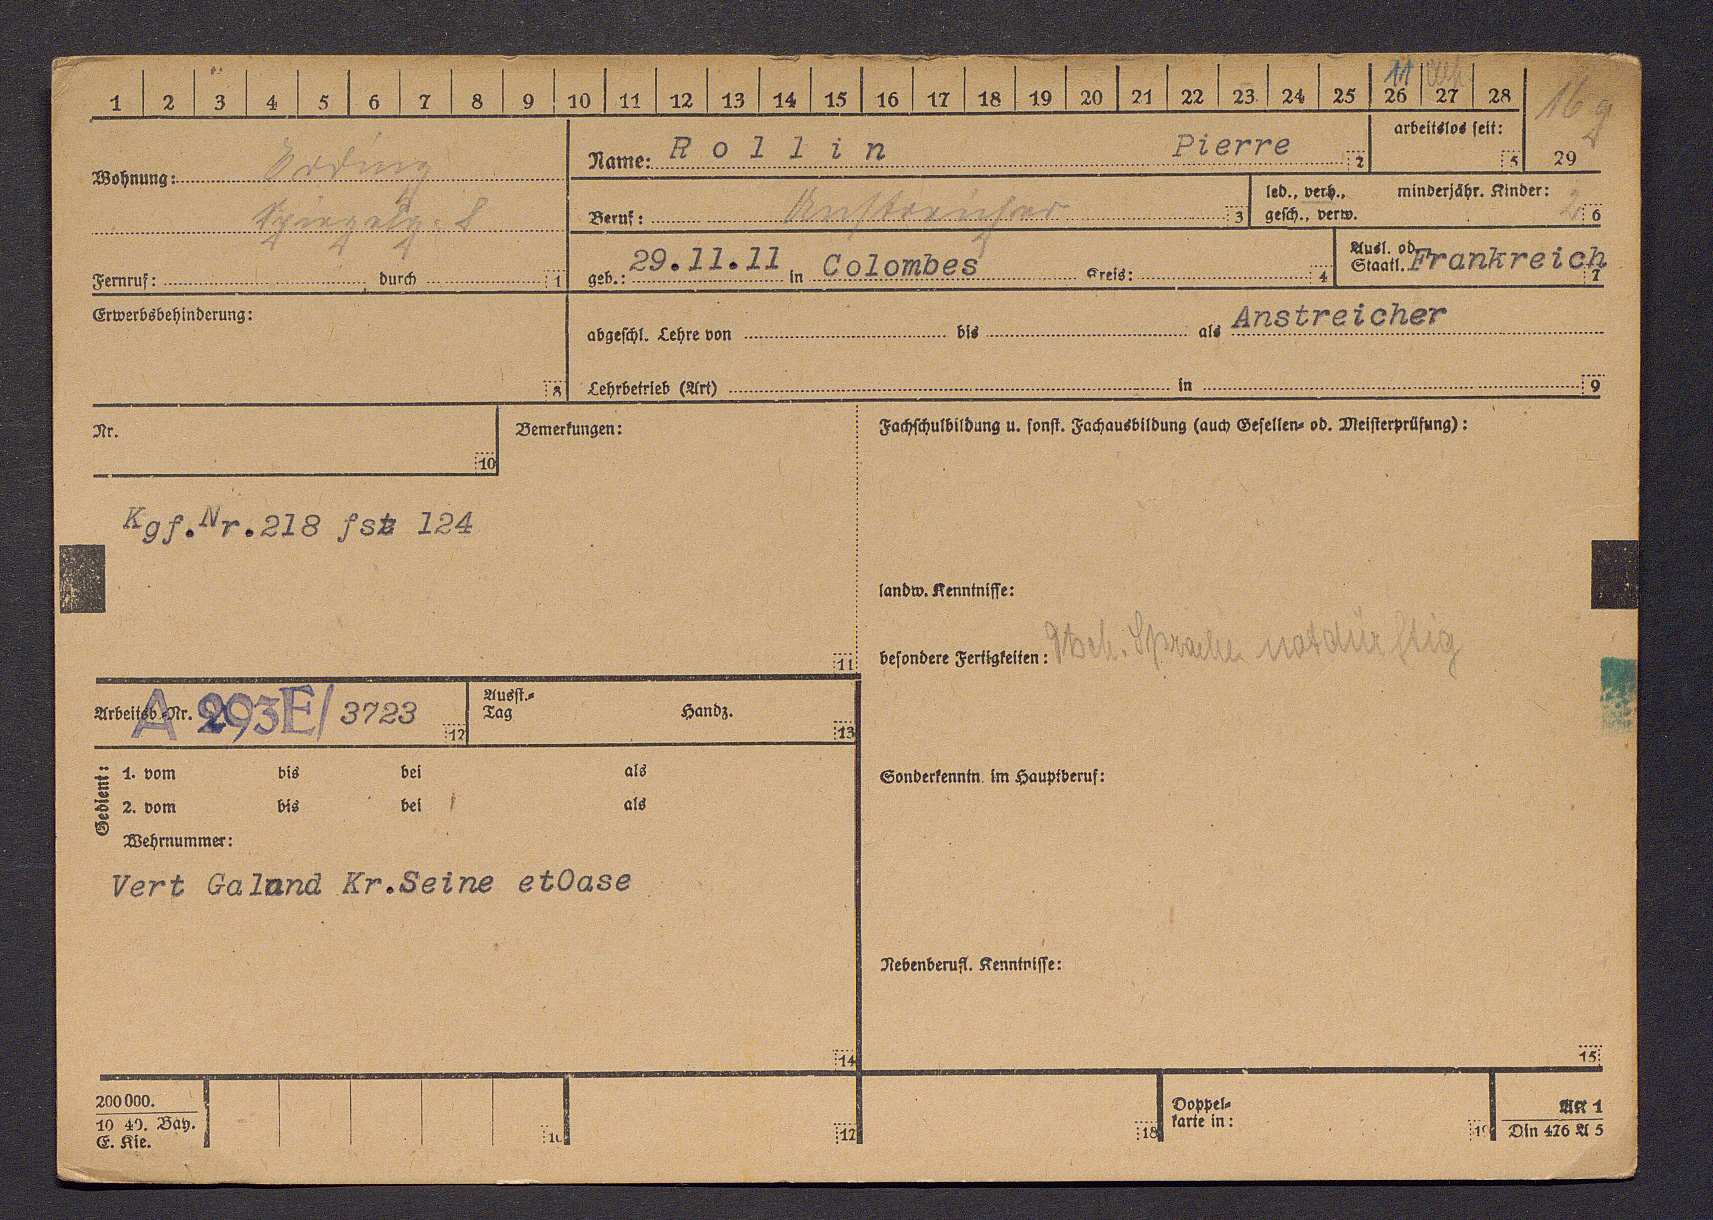 1 2 3 4 5 6 7 8 9 10 11 12 13 14 15 16 17 18 19 20 21 22 23 24 25 26 27 28
11
16 g
29
Wohnung: Erding
Spiegelg. 8
Fernruf: durch 1
Name: Rollin Pierre 2
arbeitslos seit: 5
Beruf: Anstreicher 3
led., verh., minderjähr. Kinder: 2
gesch., verw. 6
geb.: 29.11.11 in Colombes Kreis: 4
Ausl. od.
Staatl. Frankreich 7
Erwerbsbehinderung: 8
abgeschl. Lehre von bis als Anstreicher
Lehrbetrieb (Art) in 9
Nr. 10
Bemerkungen:
Kgf.Nr.218 fst 124
11
Fachschulbildung u. sonst. Fachausbildung (auch Gesellen- od. Meisterprüfung):
landw. Kenntnisse:
besondere Fertigkeiten: Dtsch. Sprache notdürftig
Arbeitsb.-Nr. A 293E/ 3723 12
Ausst.-
Tag Handz. 13
Gedient:
1. vom bis bei als
2. vom bis bei als
Wehrnummer:
Vert Galand Kr.Seine etOase
14
Sonderkenntn. im Hauptberuf:
Nebenberufl. Kenntnisse:
15
200 000.
10 40. Bay.
E. Kie.
16 17 18
Doppel-
karte in: 19
AK 1
Din 476 A 5